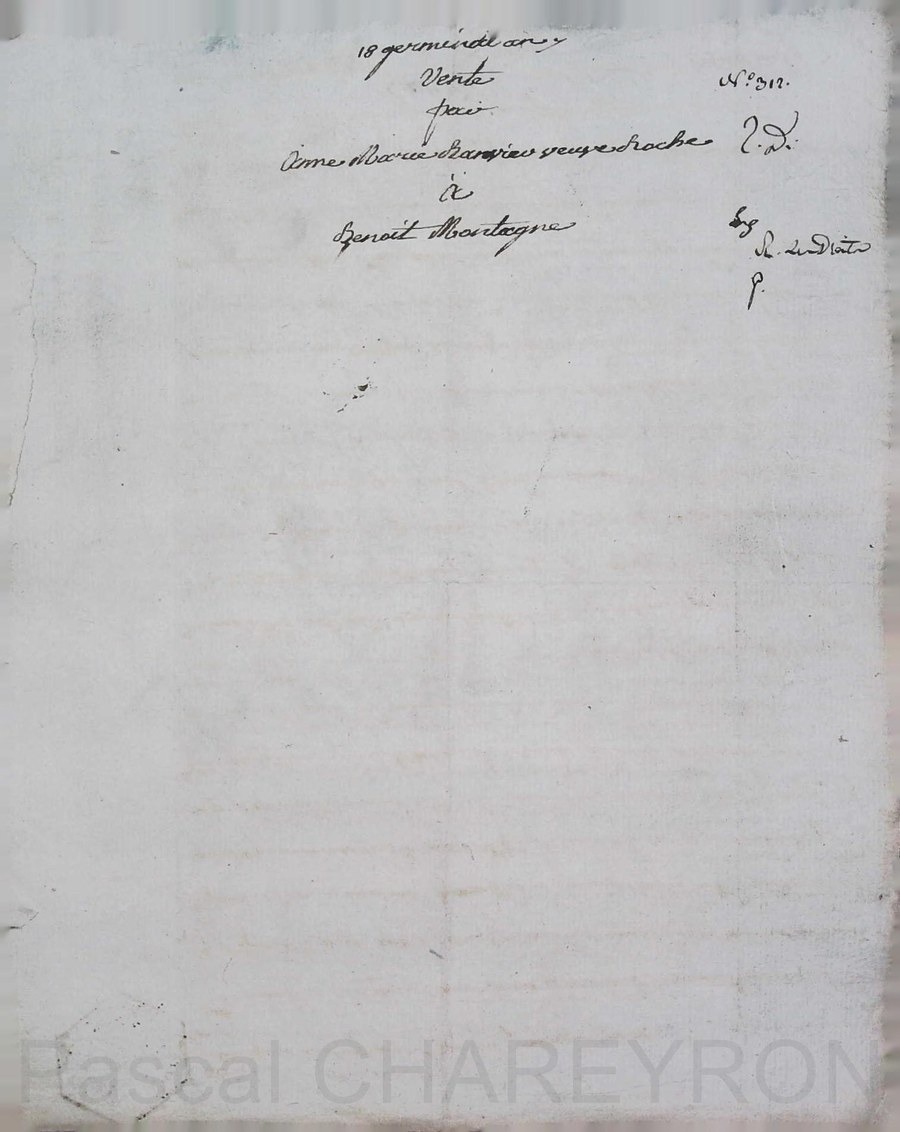 18 germinal an
Vente
par
Anne Marie veuve Roche
à
Benoit Montagne
N.° 312.
Pascal CHAREYRON